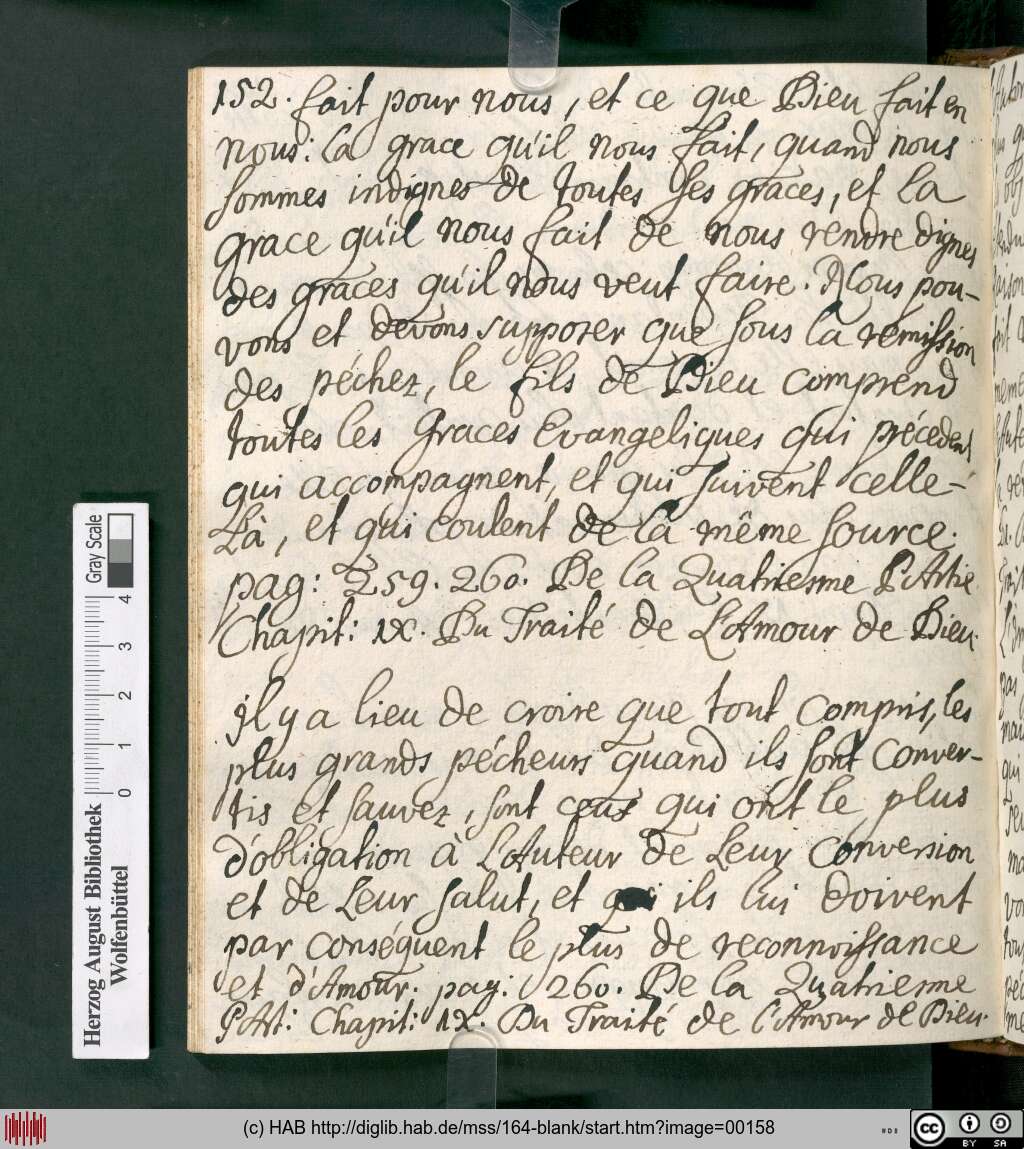 152. fait pour nous, et ce que Dieu fait en
nous: La grace qu'il nous fait, quand nous
sommes indignes de toutes ses graces, et la
grace qu'il nous fait de nous rendre dignes
des graces qu'il nous veut faire. Nous pou-
vons et devons supposer que sous la remission
des péchez, le fils de Dieu comprend
toutes les Graces Evangeliques qui précedent
qui accompagnent, et qui suivent celle-
Là, et qui coulent de la même source.
pag: 259. 260. De la Quatriesme PArtie
Chapit: IX. Du Traité de L'Amour de Dieu.
il y a lieu de croire que tout compris, les
plus grands pécheurs quand ils sont conver-
tis et sauvez, sont ceus qui ont le plus
d'obligation à L'Auteur de Leur conversion
et de Leur salut, et ils lui doivent
par conséquent le plus de reconnoissance
et d'Amour. pag: 260. De la Quatriesme
PArt: Chapit: IX. Du Traité de l'Amour de Dieu.
Herzog August Bibliothek
Wolfenbüttel
0 1 2 3 4
Gray Scale
(c) HAB http://diglib.hab.de/mss/164-blank/start.htm?image=00158
cc BY SA